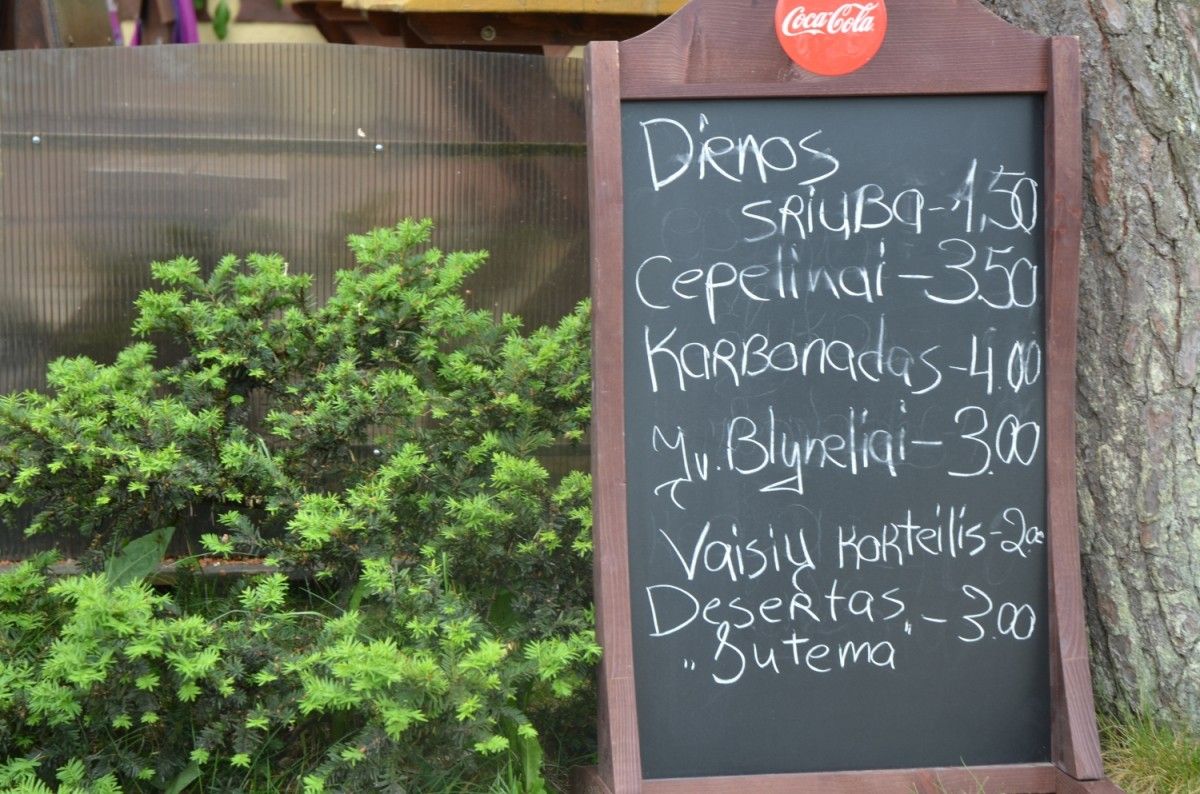 Coca-Cola
Dienos
sriuba - 1,50
Cepelinai - 3.50
Karbonadas - 4.00
Blyneliai - 3.00
Vaisių kokteilis - 2.00
Desertas - 3.00
„Sutema"